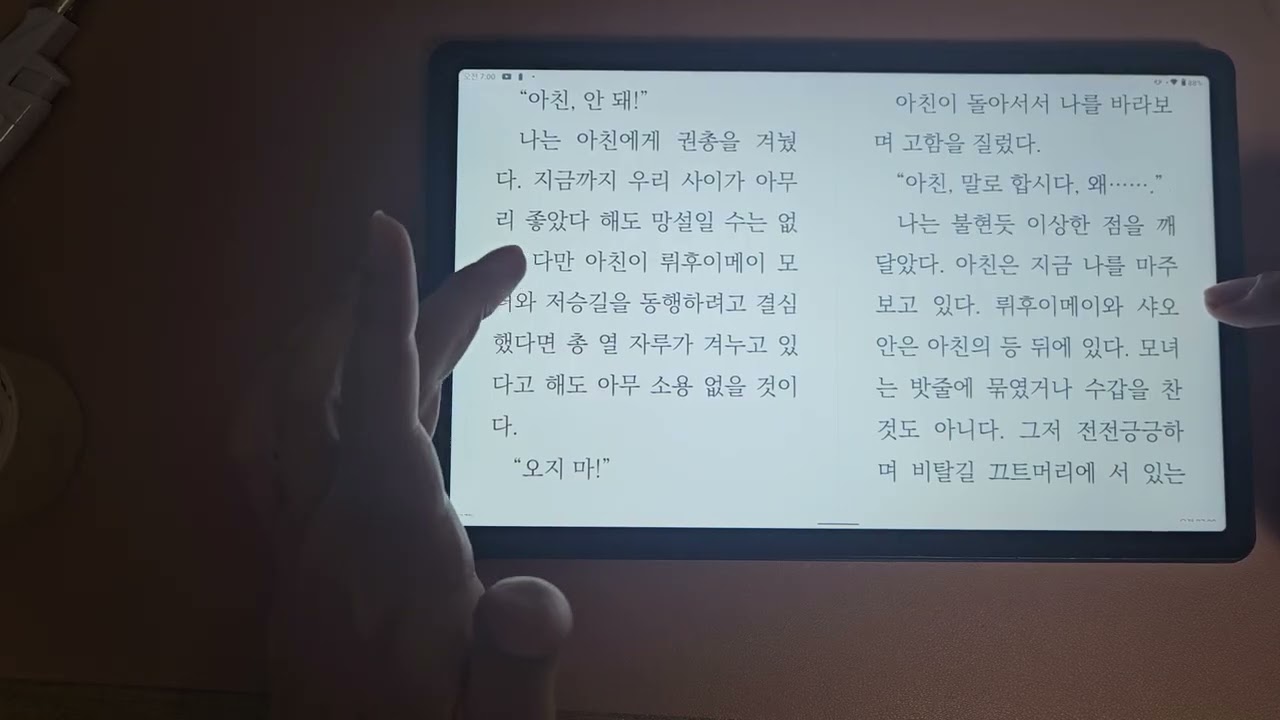 오전 7:00
88%
“아친, 안 돼!”
나는 아친에게 권총을 겨눴
다. 지금까지 우리 사이가 아무
리 좋았다 해도 망설일 수는 없
다만 아친이 뤄후이메이 모
녀와 저승길을 동행하려고 결심
했다면 총 열 자루가 겨누고 있
다고 해도 아무 소용 없을 것이
다.
“오지 마!”
아친이 돌아서서 나를 바라보
며 고함을 질렀다.
“아친, 말로 합시다, 왜…….”
나는 불현듯 이상한 점을 깨
달았다. 아친은 지금 나를 마주
보고 있다. 뤄후이메이와 샤오
안은 아친의 등 뒤에 있다. 모녀
는 밧줄에 묶였거나 수갑을 찬
것도 아니다. 그저 전전긍긍하
며 비탈길 끄트머리에 서 있는